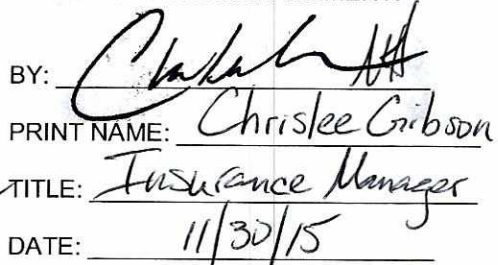 BY:
PRINT NAME: Chrislee Gibson
TITLE: Insurance Manager
DATE: 11/30/15